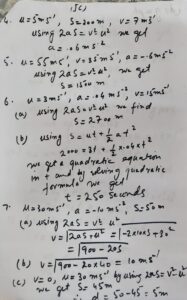 (5C)
4. u=5ms⁻¹, s=300m, v=7ms⁻¹
using 2as=v²-u² we get
a=.04ms⁻²
5. u=55ms⁻¹, v=35ms⁻¹, a=-.6ms⁻²
using 2as=v²-u², we get
s=1500 m
6. u=3ms⁻¹, a=.04ms⁻², v=15ms⁻¹
(a) using 2as=v²-u² we find
s=2700 m
(b) using s=ut+½at²
2000=3t+½×.04×t²
we get a quadratic equation
in t and by solving quadratic
formula we get
t=250 seconds
7. u=30ms⁻¹, a=-10ms⁻², s=50m
(a) using 2as=v²-u²
v=√2as+u² = √-2×10×s+30²
=√900-20s
(b) v=√900-20×40 = 10 ms⁻¹
(c) v=0, u=30ms⁻¹ by using 2as=v²-u²
we get s=45m
d=50-45=5m